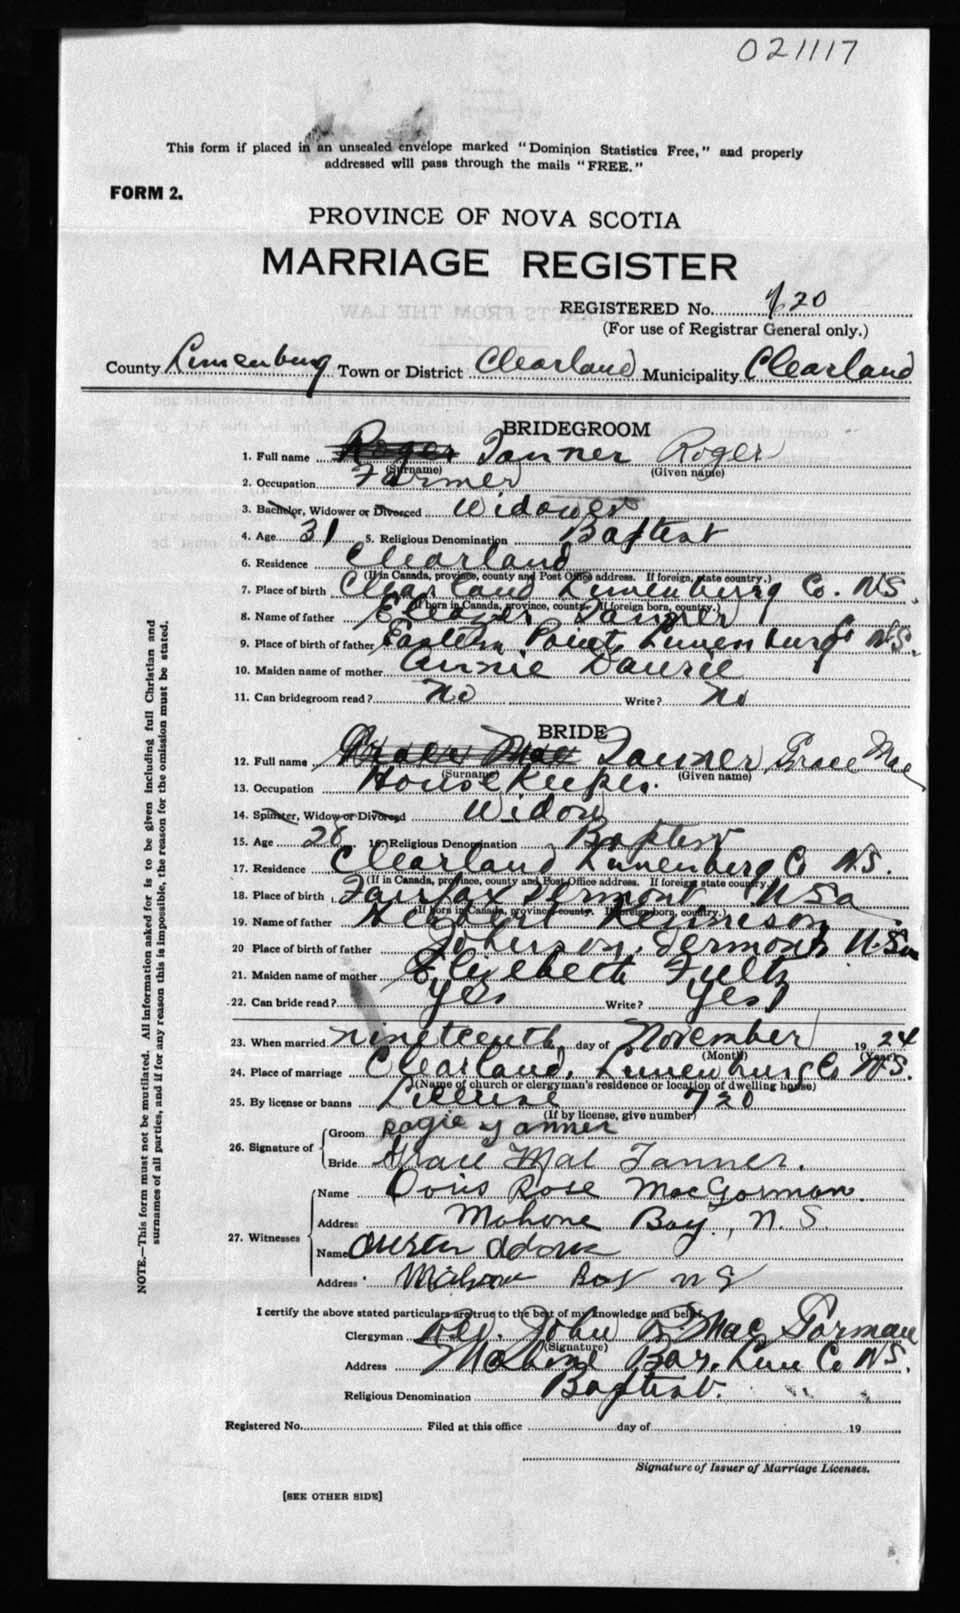 021117
This form if placed in an unsealed envelope marked "Dominion Statistics Free," and properly
addressed will pass through the mails "FREE."
FORM 2.
PROVINCE OF NOVA SCOTIA
MARRIAGE REGISTER
REGISTERED No. 720
(For use of Registrar General only.)
County Lunenburg Town or District Clearland Municipality Clearland
BRIDEGROOM
1. Full name Roger Tanner Roger
(Surname) (Given name)
2. Occupation Farmer
3. Bachelor, Widower or Divorced Widower
4. Age 31 5. Religious Denomination Baptist
6. Residence Clearland
(If in Canada, province, county and Post Office address. If foreign, state country.)
7. Place of birth Clearland Lunenburg Co. N.S.
(If born in Canada, province, county. If foreign born, country.)
8. Name of father Eleazer Tanner
9. Place of birth of father Eastern Point, Lunenburg Co N.S.
10. Maiden name of mother Annie Daurie
11. Can bridegroom read? No Write? No
BRIDE
12. Full name Grace Mae Tanner, Grace Mae
(Surname) (Given name)
13. Occupation House Keeper.
14. Spinster, Widow or Divorced Widow
15. Age 26 16. Religious Denomination Baptist
17. Residence Clearland Lunenburg Co N.S.
(If in Canada, province, county and Post Office address. If foreign state country.)
18. Place of birth Fairfax Vermont U Sa
(If born in Canada, province county. If foreign born, country.)
19. Name of father
20 Place of birth of father Vermont U.Sa
21. Maiden name of mother Elizebeth Fultz
22. Can bride read? yes Write? yes
23. When married nineteenth day of November 1924
(Month) (Year)
24. Place of marriage Clearland, Lunenburg Co N.S.
(Name of church or clergyman's residence or location of dwelling house)
25. By license or banns License 720
(If by license, give number)
26. Signature of
Groom Rogie Tanner
Bride Grace Mae Tanner.
27. Witnesses
Name Doris Rose MacGorman.
Address Mahone Bay, N.S.
Name
Address Mahone Bay N S
I certify the above stated particulars are true to the best of my knowledge and belief.
Clergyman Rev. John B. MacGorman
(Signature)
Address Mahone Bay, Lune Co N.S.
Religious Denomination Baptist.
Registered No. Filed at this office day of 19
Signature of Issuer of Marriage Licenses.
[SEE OTHER SIDE]
NOTE.—This form must not be mutilated. All information asked for is to be given including full Christian and
surnames of all parties, and if for any reason this is impossible, the reason for the omission must be stated.